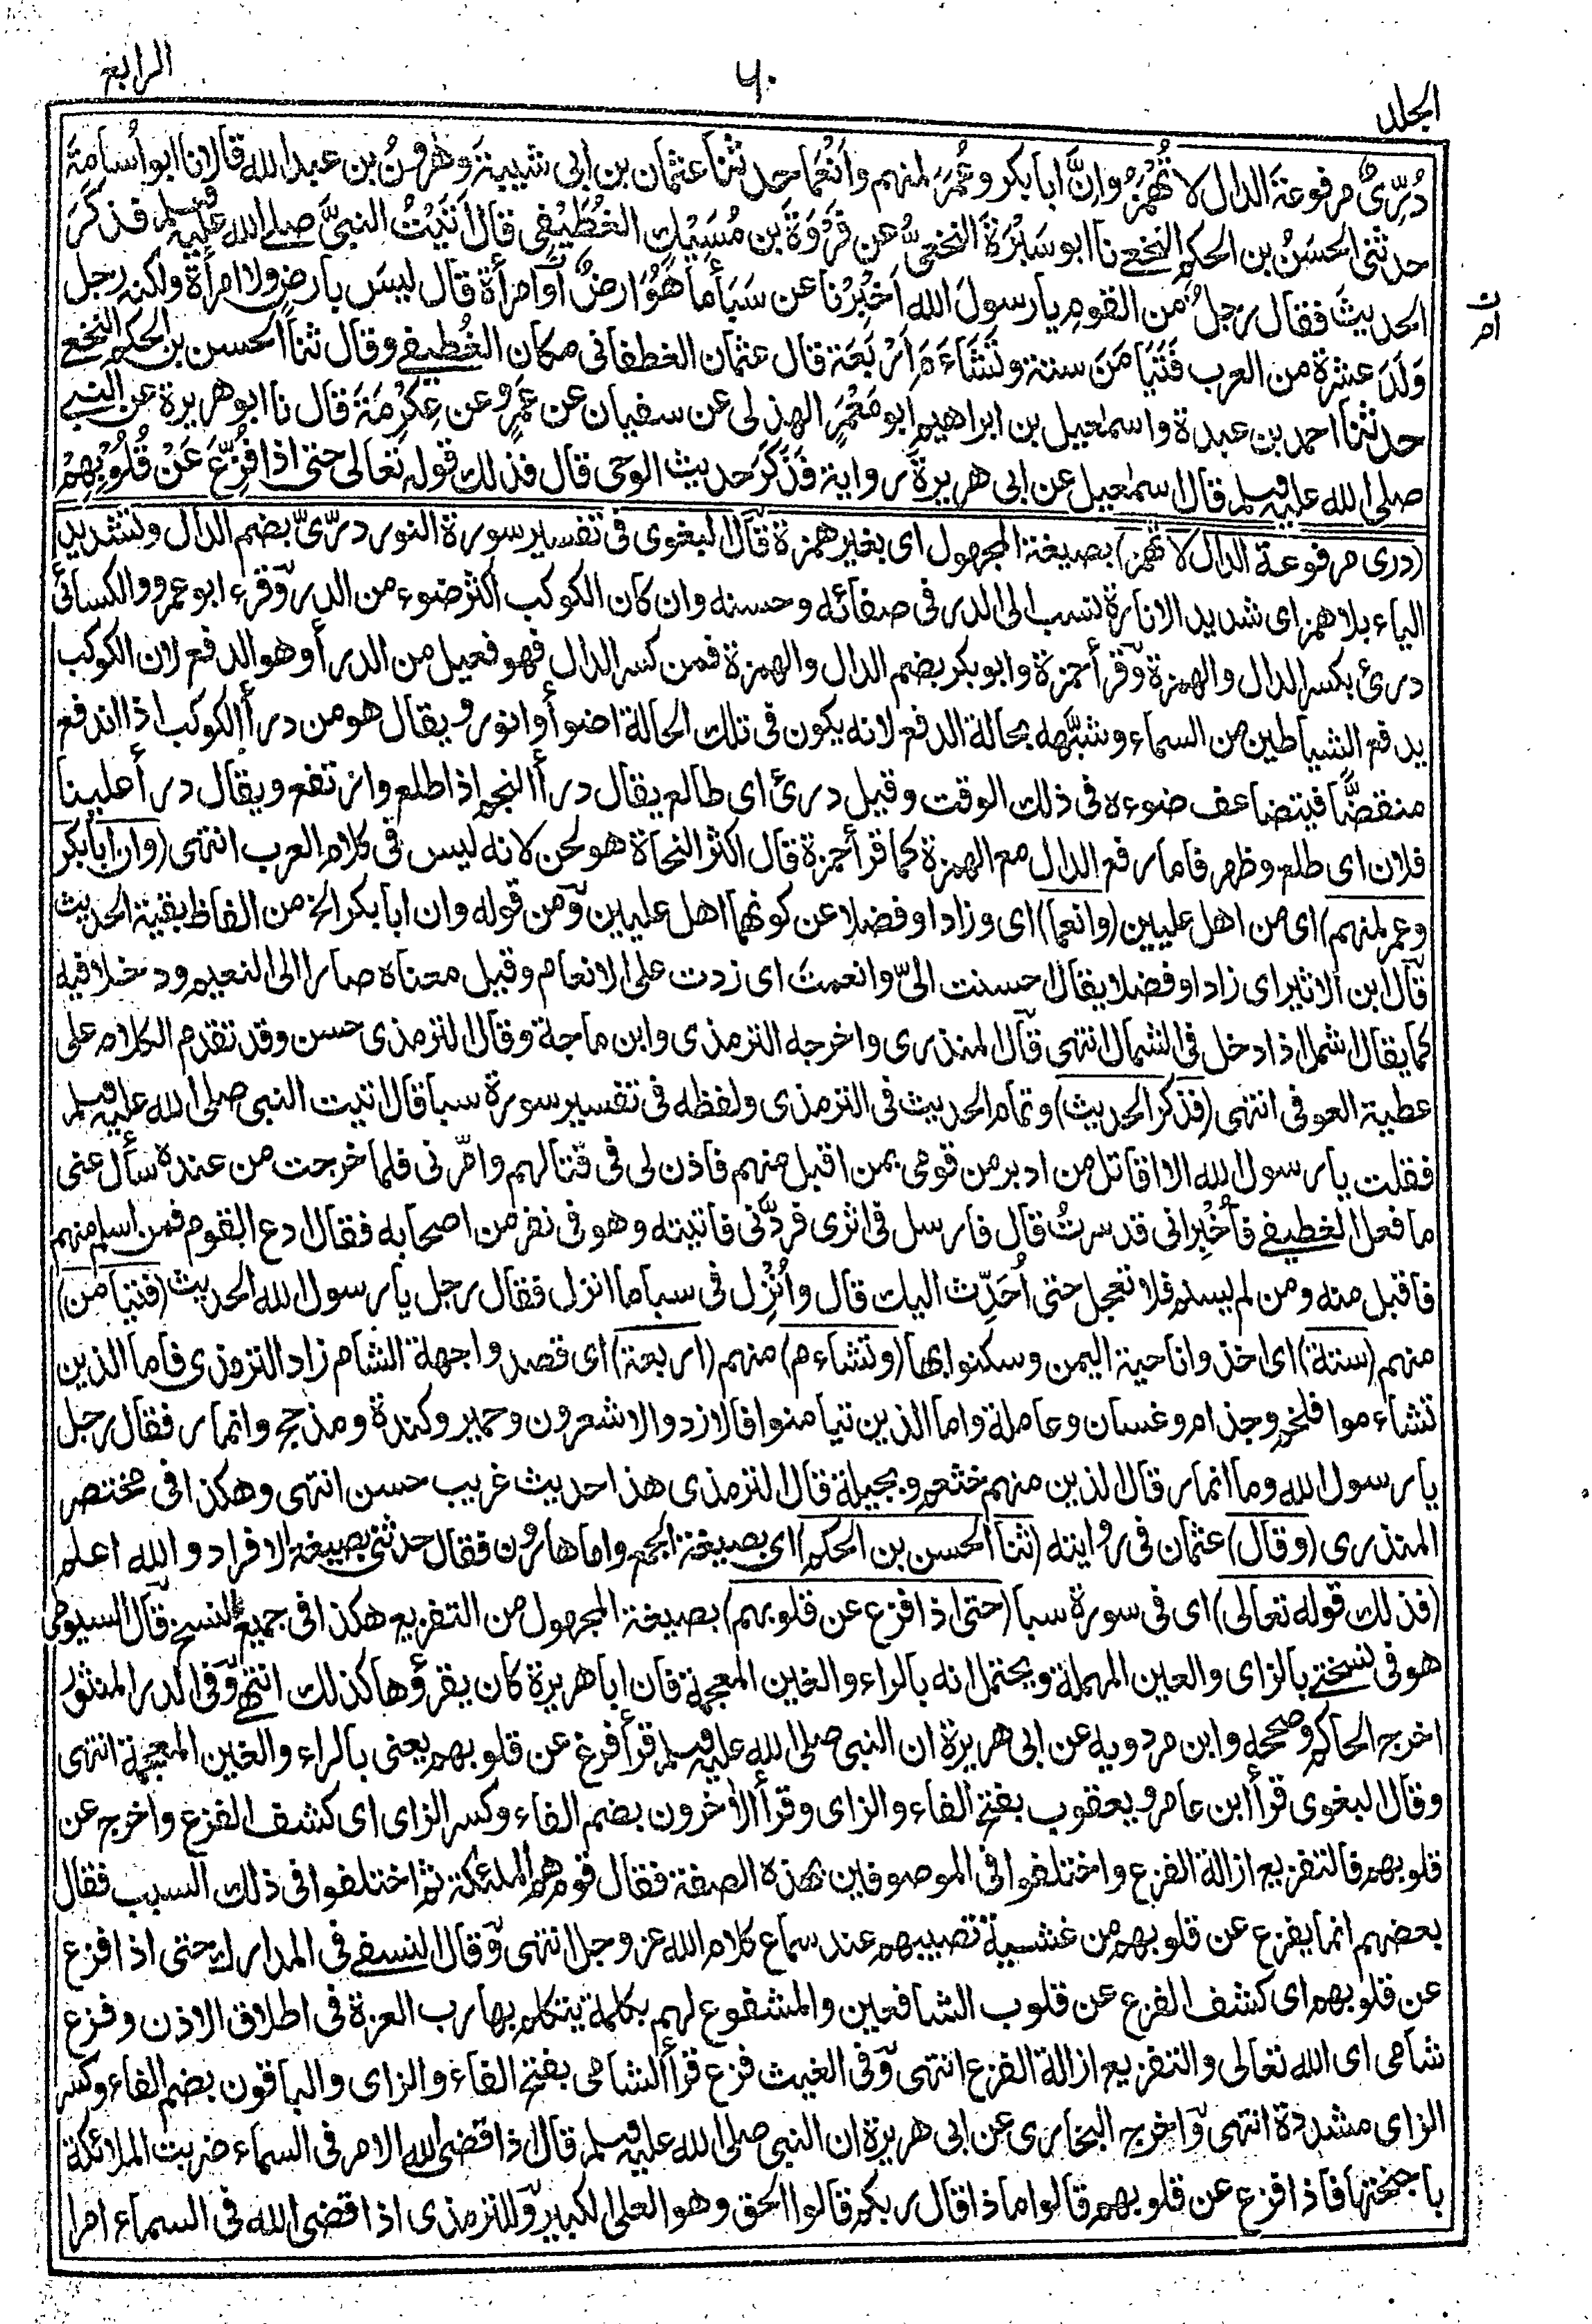 الرابع
٦٠
المجلد
دُرِّىٌّ مرفوعة الدال لا تُهْمَزُ وإنَّ ابا بكر وعُمَرَ لمنهم وأَنْعَمَا حدثنا عثمان بن ابى شيبة وهرون بن عبد الله قالا نا ابو أسامة
حدثنى الحسَنُ بن الحكم النخعي نا ابو سَبْرَةَ النخعيُّ عن فَرْوَةَ بن مُسَيْكٍ الغُطَيْفى قال أتَيْتُ النبيَّ صلى الله عليه وسلم فذكَرَ
الحديثَ فقال رجلٌ من القومِ يا رسولَ الله أخْبِرْنا عن سَبَأ ما هُوَ أرضٌ أو امرأة قال ليسَ بارضٍ ولا امرأة ولكنه رجل
وَلَدَ عشرة من العرب فَتَيَامَنَ ستة وتَشَاءَمَ أرْبَعَة قال عثمان الغطفانى مكان الغُطيفى وقال ثنا الحسن بن الحكم النخعى
حدثنا احمد بن عبدة واسمعيل بن ابراهيم ابو مَعْمَرٍ الهذلى عن سفيان عن عَمْرٍو عن عِكْرِمَةَ قال نا ابو هريرة عن النبي
صلى الله عليه وسلم قال اسمعيل عن ابى هريرة رواية فَذَكَرَ حديث الوحى قال فذلك قوله تعالى حتى اذا فُزِّعَ عَنْ قُلُوبِهِمْ
(درى مرفوعة الدال لا تهمز) بصيغة المجهول اى بغير همزة قال البغوى فى تفسير سورة النور درّىّ بضم الدال وتشديد
الياء بلا همز اى شديد الانارة نسب الى الدر فى صفائه وحسنه وان كان الكوكب اكثر ضوء من الدر وقرء ابو عمرو والكسائى
درئ بكسر الدال والهمزة وقرأ حمزة وابو بكر بضم الدال والهمزة فمن كسر الدال فهو فعيل من الدرأ وهو الدفع لان الكوكب
يدفع الشياطين من السماء وشبَّهه بحالة الدفع لانه يكون فى تلك الحالة اضوأ وانور ويقال هو من درأ الكوكب اذا اندفع
منقضًّا فيتضاعف ضوءه فى ذلك الوقت وقيل درئ اى طالع يقال درأ النجم اذا طلع وارتفع ويقال درأ علينا
فلان اى طلع وظهر فاما رفع الدال مع الهمزة كما قرأ حمزة قال اكثر النحاة هو لحن لانه ليس فى كلام العرب انتهى (وان ابا بكر
وعمر لمنهم) اى من اهل عليين (وانعما) اى وزادا وفضلا عن كونهما اهل عليين ومن قوله وان ابا بكر الخ من الفاظ بقية الحديث
قال ابن الاثير اى زادا وفضلا يقال احسنت الىّ وانعمت اى زدت على الانعام وقيل معناه صارا الى النعيم ودخلا فيه
كما يقال اشمل اذا دخل فى الشمال انتهى قال المنذرى واخرجه الترمذى وابن ماجة وقال الترمذى حسن وقد تقدم الكلام على
عطية العوفى انتهى (فذكر الحديث) وتمام الحديث فى الترمذى ولفظه فى تفسير سورة سبا قال اتيت النبى صلى الله عليه وسلم
فقلت يا رسول الله الا اقاتل من ادبر من قومى بمن اقبل منهم فاذن لى فى قتالهم وامّرنى فلما خرجت من عنده سأل عنى
ما فعل الغطيفى فأُخْبِرَ انى قد سرتُ قال فارسل فى اثرى فردَّنى فاتيته وهو فى نفر من اصحابه فقال ادع القوم فمن اسلم منهم
فاقبل منه ومن لم يسلم فلا تعجل حتى اُحَدِّث اليك قال وأُنْزِل فى سبا ما انزل فقال رجل يا رسول الله الحديث (فتيامن)
منهم (ستة) اى اخذوا ناحية اليمن وسكنوا بها (وتشاءم) منهم (اربعة) اى قصدوا جهة الشام زاد الترمذى فاما الذين
تشاءموا فلخم وجذام وغسان وعاملة واما الذين تيامنوا فالازد والاشعرون وحمير وكندة ومذحج وانمار فقال رجل
يا رسول الله وما انمار قال الذين منهم خثعم وبجيلة قال الترمذى هذا حديث غريب حسن انتهى وهكذا فى مختصر
المنذرى (وقال) عثمان فى روايته (ثنا الحسن بن الحكم) اى بصيغة الجمع واما هارون فقال حدثنى بصيغة الافراد والله اعلم
(فذلك قوله تعالى) اى فى سورة سبا (حتى اذا فزع عن قلوبهم) بصيغة المجهول من التفزيع هكذا فى جميع النسخ قال السيوطى
هو فى نسختى بالزاى والعين المهملة ويحتمل انه بالراء والغين المعجمة فان ابا هريرة كان يقرؤها كذلك انتهى وفى الدر المنثور
اخرج الحاكم وصححه وابن مردويه عن ابى هريرة ان النبى صلى الله عليه وسلم قرأ فرغ عن قلوبهم يعنى بالراء والغين المعجمة انتهى
وقال البغوى قرأ ابن عامر ويعقوب بفتح الفاء والزاى وقرأ الأخرون بضم الفاء وكسر الزاى اى كشف الفزع واخرج عن
قلوبهم فالتفزيع ازالة الفزع واختلفوا فى الموصوفين بهذه الصفة فقال قوم هم الملئكة ثم اختلفوا فى ذلك السبب فقال
بعضهم انما يفزع عن قلوبهم من غشية تصيبهم عند سماع كلام الله عز وجل انتهى وقال النسفى فى المدارك حتى اذا فزع
عن قلوبهم اى كشف الفزع عن قلوب الشافعين والمشفوع لهم بكلمة يتكلم بها رب العزة فى اطلاق الاذن وفزع
شامى اى الله تعالى والتفزيع ازالة الفزع انتهى وفى الغيث فزع قرأ الشامى بفتح الفاء والزاى والباقون بضم الفاء وكسر
الزاى مشددة انتهى واخرج البخارى عن ابى هريرة ان النبى صلى الله عليه وسلم قال اذا قضى الله الامر فى السماء ضربت الملائكة
باجنحتها فاذا فزع عن قلوبهم قالوا ماذا قال ربكم قالوا الحق وهو العلى الكبير وللترمذى اذا قضى الله فى السماء امرا